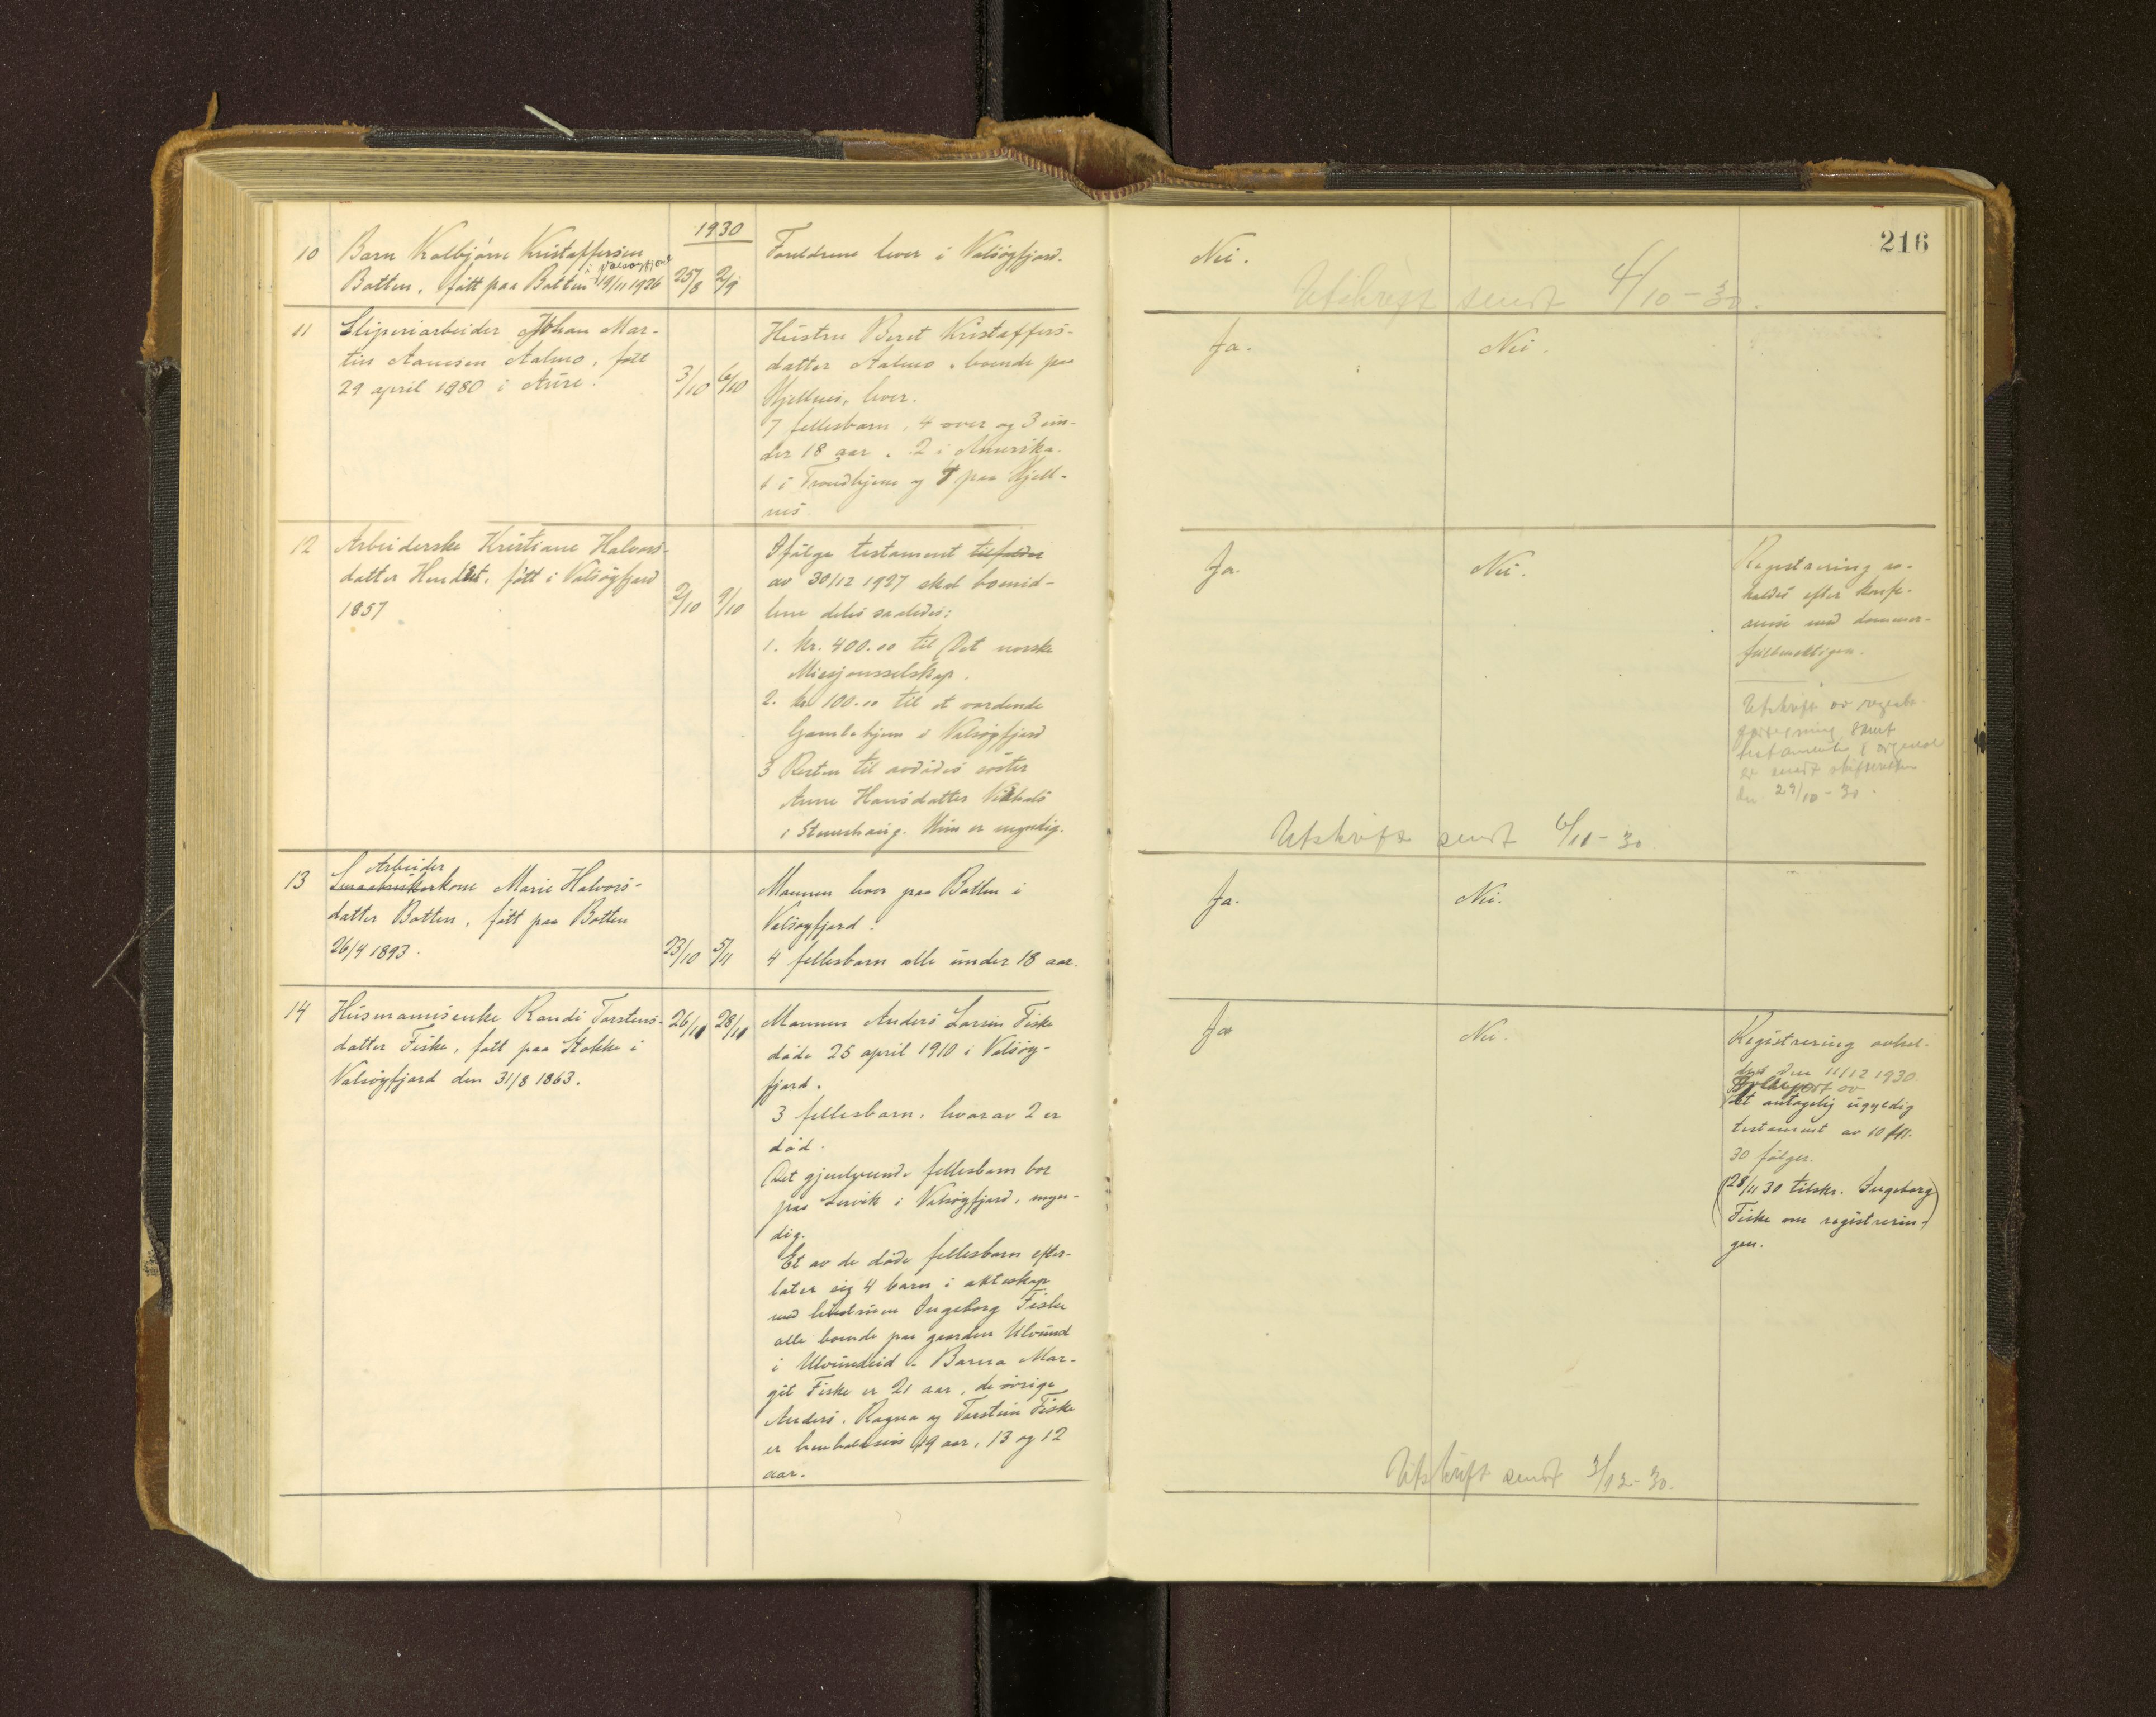 1930
216
10 Barn Kolbjørn Kristoffersen
i Valsøyfjord
Botten, født paa Botten 19/11 1926 25/8 2/9
Foreldrene lever i Valsøyfjord.
Nei.
Utskrift sendt 4/10-30.
11 Sliperiarbeider Johan Mar-
tin Aanesen Aalmo, født
29 april 1880 i Aure. 3/10 6/10
Hustru Beret Kristoffers-
datter Aalmo, boende paa
Kjellnes, lever.
7 fellesbarn, 4 over og 3 un-
der 18 aar. 2 i Amerika.
1 i Trondhjem og 4 paa Kjell-
nes
Ja. Nei.
12 Arbeiderske Kristiane Halvors-
datter Hendset, født i Valsøyfjord
1857 2/10 9/10
Ifølge testament tilfalder
av 30/12 1927 skal bomid-
lene deles saaledes:
1. kr. 400.00 til Det norske
Misjonsselskap.
2. kr 100.00 til et vordende
Gamlehjem i Valsøyfjord
3 Resten til avdødes søster
Anne Hansdatter
i Stemshaug. Hun er myndig.
Ja. Nei.
Registrering av-
holdes efter konfe-
ranse med dommer-
fuldmektigen.
Utskrift av registr.
forretning samt
testamente i original
er sendt skifteretten
den 29/10-30.
Utskrift sendt 6/11-30
13 Arbeider
Smaabrukerkone Marie Halvors-
datter Botten, født paa Botten
26/4 1893. 23/10 5/11
Mannen lever paa Botten i
Valsøyfjord.
4 fellesbarn alle under 18 aar.
Ja. Nei.
14 Husmannsenke Randi Torstens-
datter Fiske, født paa Stokke i
Valsøyfjord den 31/8 1863. 26/11 28/11
Mannen Anders Larsen Fiske
døde 25 april 1910 i Valsøy-
fjord.
3 fellesbarn, hvorav 2 er
død.
Det gjenlevende fellesbarn bor
paa Lervik i Valsøyfjord, myn-
dig.
Et av de døde fellesbarn efter-
later sig 4 barn i ekteskap
med hustruen Ingeborg Fiske
alle boende paa gaarden Ulvund
i Ulvundeid - Barna Mar-
git Fiske er 21 aar, de øvrige
Anders, Ragna og Torstein Fiske
er henholdsvis 19 aar, 13 og 12
aar.
Ja Nei.
Registrering avhol-
des den 11/12 1930.
av
Et antagelig ugyldig
testament av 10/11.
30 følger.
(28/11 30 tilskr. Ingeborg
Fiske om registrerin-)
gen.
Utskrift sendt 3/12-30.